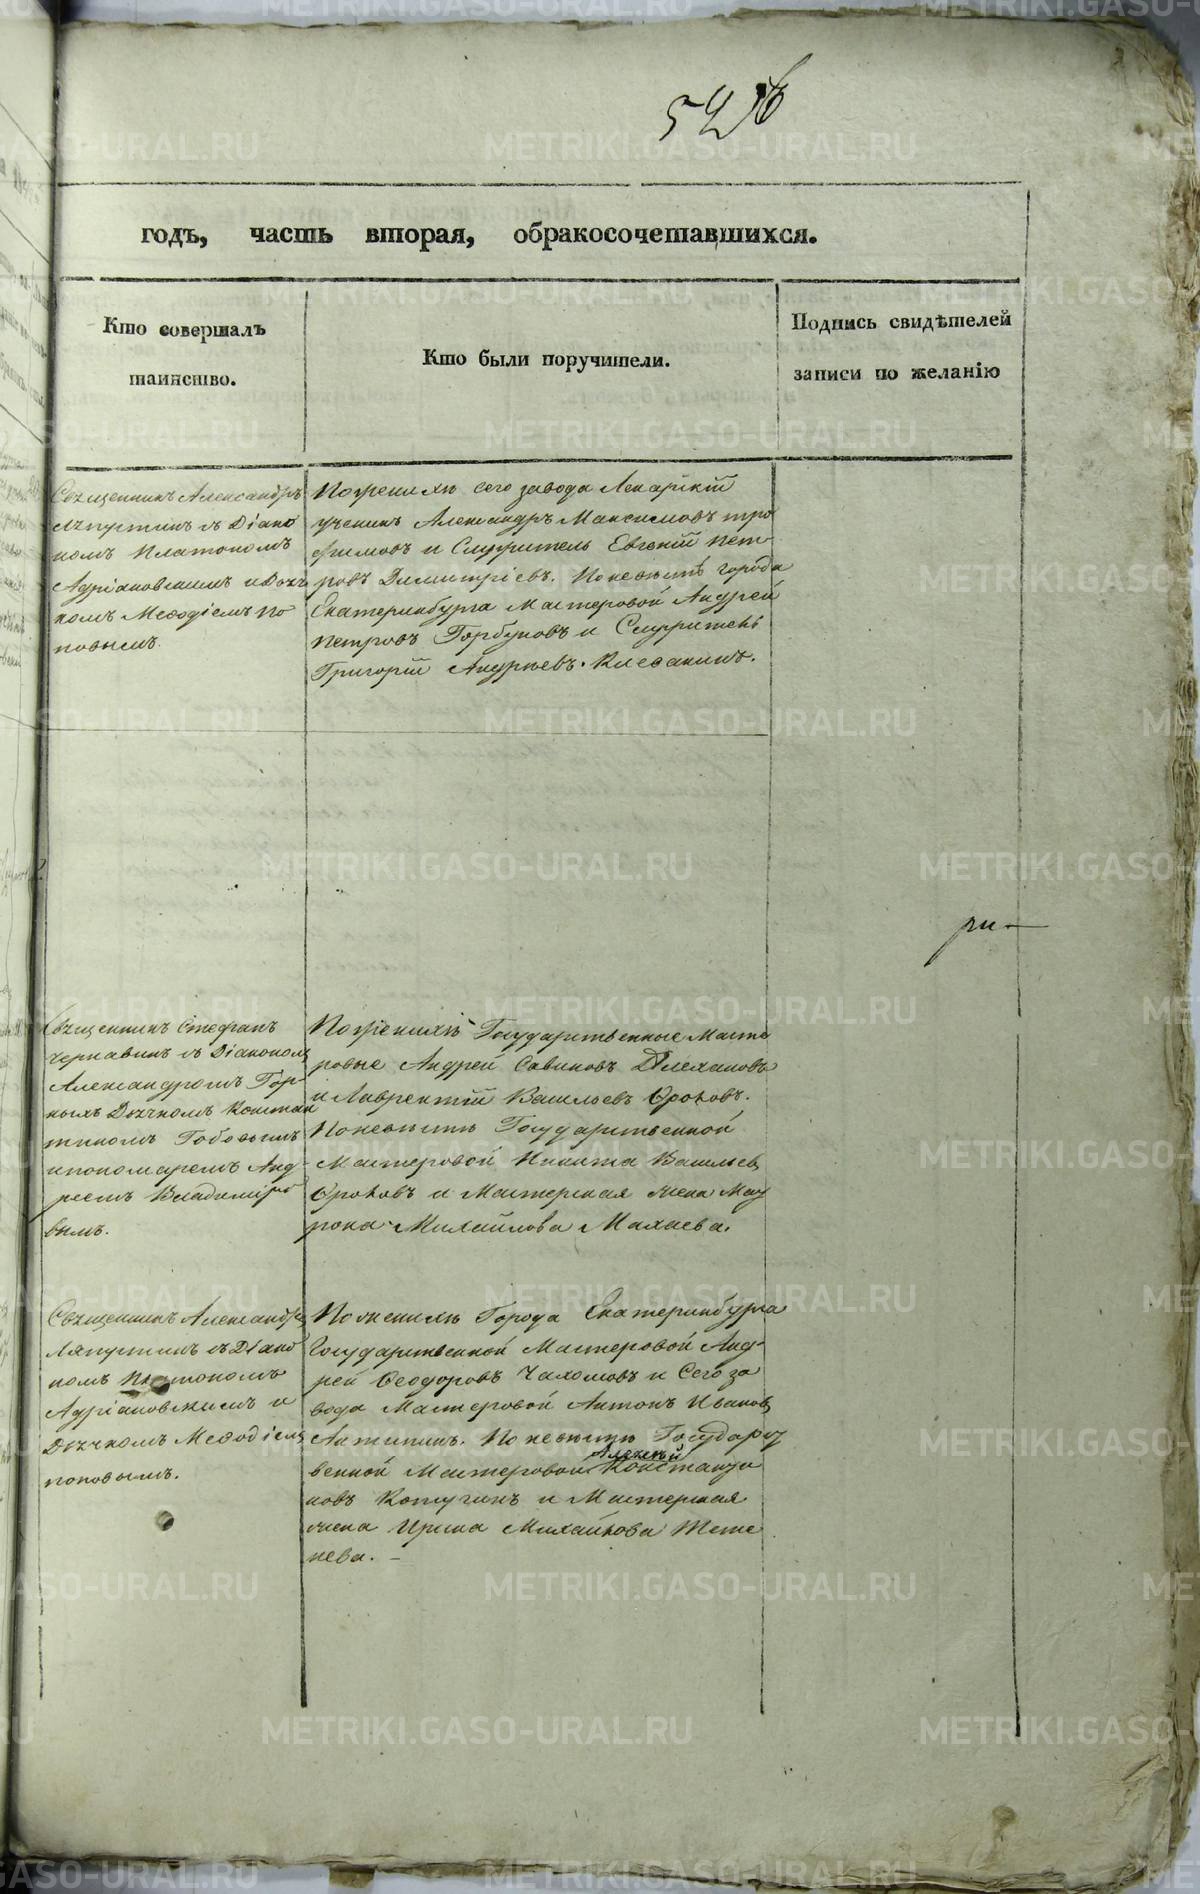 годъ, часть вторая, обракосочетавшихся.
Кто совершалъ
таинство.
Кто были поручители.
Подпись свидѣтелей
записи по желанію
Священникъ Александръ
Ляпустинъ съ Діако
номъ Платономъ
Адріановскимъ и Дьяч
комъ Меѳодіемъ По
повымъ.
Поженихѣ сего завода Лекарскій
ученикъ Александръ Максимовъ тро
фимовъ и Служитель Евгеній пет
ровъ Димитріевъ. Поневѣстѣ города
Екатеринбурга Мастеровой Андрей
петровъ Горбуновъ и Служитель
Григорій Андреевъ Клесакинъ.
Священникъ Стефанъ
Чернавинъ съ Діакономъ
Александромъ Гор
ныхъ Дьячкомъ Констан
тиномъ Гобовымъ
и пономаремъ Анд
реемъ Владиміро
вымъ.
Поженихѣ Государственные Масте
ровые Андрей Савиновъ Плехановъ
и Лаврентій Васильевъ Ѳроловъ.
Поневѣстѣ Государственной
Мастеровой Никита Васильевъ
Ѳроловъ и Мастерская жена Мат
рона Михайлова Махаева.
Священникъ Александръ
Ляпустинъ съ Діако
номъ Платономъ
Адріановскимъ и
Дьячкомъ Меѳодіемъ
поповымъ.
Поженихѣ Города Екатеринбурга
Государственной Мастеровой Анд
рей Ѳеодоровъ Чахомовъ и Сего за
вода Мастеровой Антонъ Ивановъ
Антипинъ. Поневѣстѣ Государст
венной Мастеровой Алексѣй Константи
новъ Котугинъ и Мастерская
жена Ирина Михайлова Тете
нева. –
METRIKI.GASO-URAL.RU